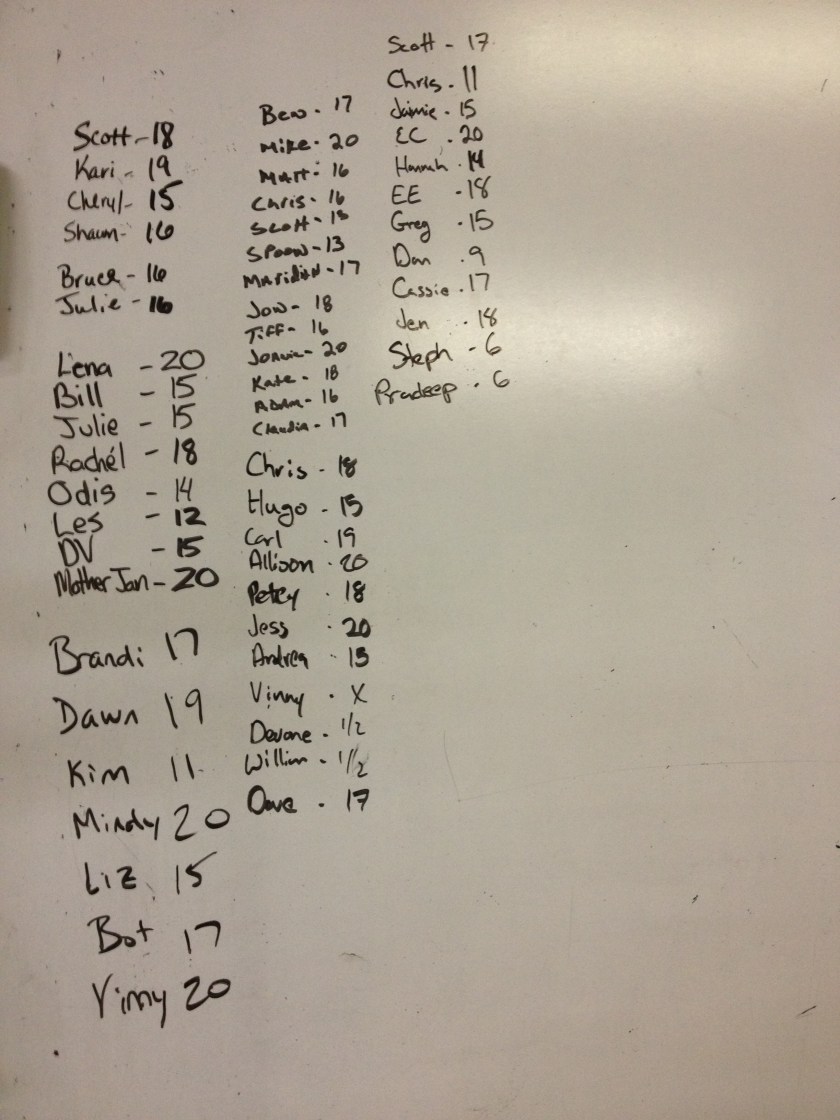 Scott - 18
Kari - 19
Cheryl - 15
Shaun - 16
Bruce - 16
Julie - 16
Lena - 20
Bill - 15
Julie - 15
Rachél - 18
Odis - 14
Les - 12
DV - 15
Mother Jan - 20
Brandi 17
Dawn 19
Kim 11
Mindy 20
Liz 15
Bot 17
Vinny 20
Ben - 17
Mike - 20
Matt - 16
Chris - 16
Scott - 15
Spoon - 13
Meridith - 17
Jon - 18
Tiff - 16
- 20
Kate - 18
Adam - 16
Claudia - 17
Chris - 18
Hugo - 15
Carl - 19
Allison - 20
Petey - 18
Jess - 20
Andrea - 15
Vinny - X
Devone - 1/2
Willim - 1/2
Dave - 17
Scott - 17
Chris - 11
Jaimie - 15
EC - 20
Hannah - 14
EE - 18
Greg - 15
Dan - 9
Cassie - 17
Jen - 18
Steph - 6
Pradeep - 6